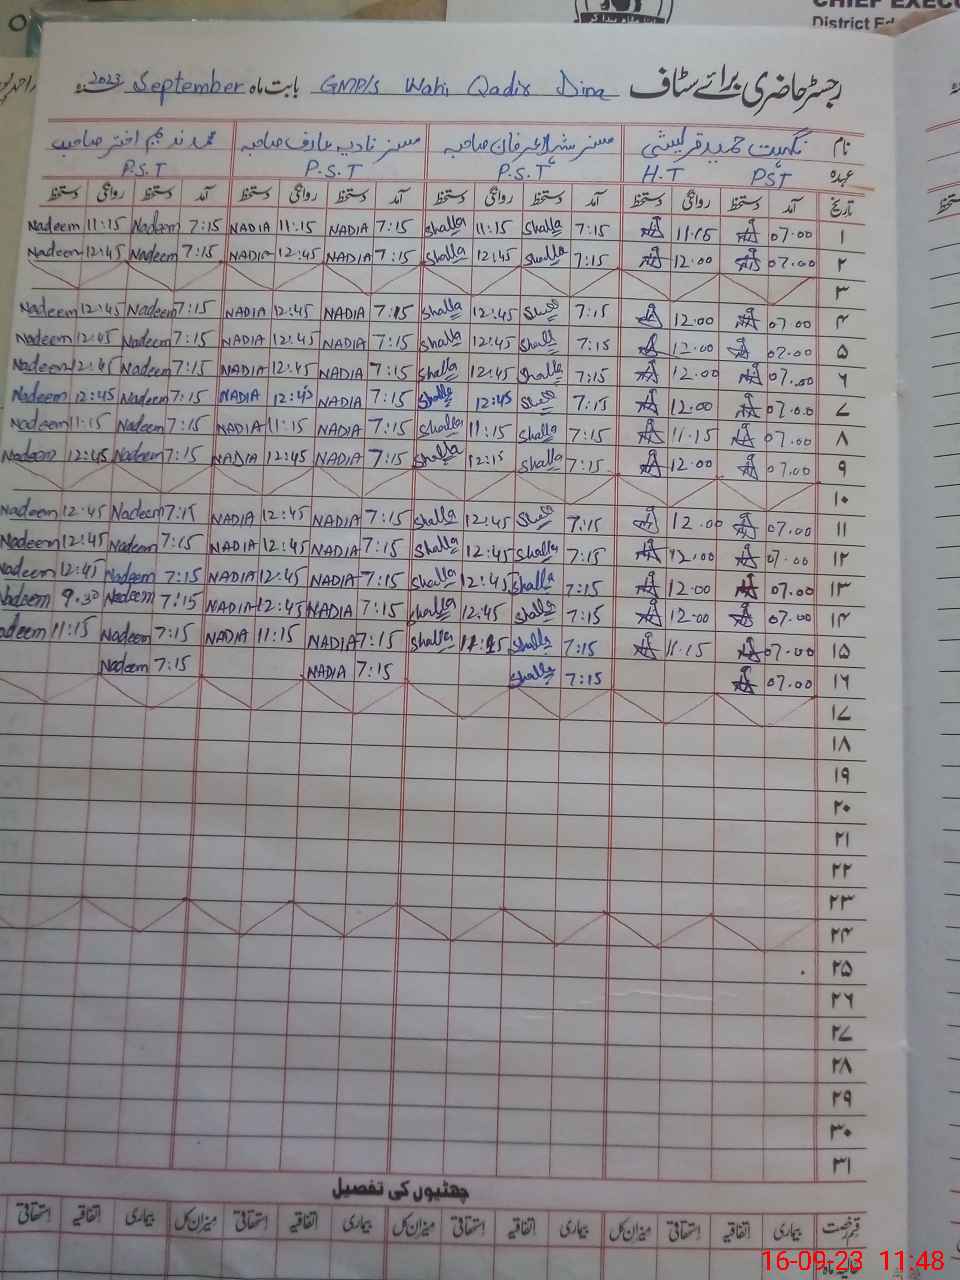 CHIEF EXECU
District Ed
رجسٹر حاضری برائے سٹاف GMP/S Wahi Qadir Dina بابت ماہ September 2023
نام نگہت حمید قریشی مسز شہلا عرفان صاحبہ مسز نادیہ عارف صاحبہ محمد ندیم اختر صاحب
عہدہ PST H.T P.S.T P.S.T P.S.T
تاریخ آمد دستخط روانگی دستخط آمد دستخط روانگی دستخط آمد دستخط روانگی دستخط آمد دستخط روانگی دستخط
۱ 07.00 11.15 7:15 Shalla 11:15 Shalla 7:15 NADIA 11:15 NADIA 7:15 Nadeem 11:15 Nadeem
۲ 07.00 12.00 7:15 Shalla 12:45 Shalla 7:15 NADIA 12:45 NADIA 7:15 Nadeem 12:45 Nadeem
۳
۴ 07.00 12.00 7:15 12:45 Shalla 7:15 NADIA 12:45 NADIA 7:15 Nadeem 12:45 Nadeem
۵ 07.00 12.00 7:15 Shall 12:45 Shalla 7:15 NADIA 12:45 NADIA 7:15 Nadeem 12:45 Nadeem
۶ 07.00 12.00 7:15 Shalla 12:45 Shalla 7:15 NADIA 12:45 NADIA 7:15 Nadeem 12:45 Nadeem
۷ 07.00 12.00 7:15 12:45 Shalla 7:15 NADIA 12:45 NADIA 7:15 Nadeem 12:45 Nadeem
۸ 07.00 11.15 7:15 Shalla 11:15 Shalla 7:15 NADIA 11:15 NADIA 7:15 Nadeem 11:15 Nadeem
۹ 07.00 12.00 7:15 Shalla 12:15 Shalla 7:15 NADIA 12:45 NADIA 7:15 Nadeem 12:45 Nadeem
۱۰
۱۱ 07.00 12.00 7:15 12:45 Shalla 7:15 NADIA 12:45 NADIA 7:15 Nadeem 12:45 Nadeem
۱۲ 07.00 12.00 7:15 Shalla 12:45 Shalla 7:15 NADIA 12:45 NADIA 7:15 Nadeem 12:45 Nadeem
۱۳ 07.00 12.00 7:15 Shalla 12:45 Shalla 7:15 NADIA 12:45 NADIA 7:15 Nadeem 12:45 Nadeem
۱۴ 07.00 12.00 7:15 Shalla 12:45 Shalla 7:15 NADIA 12:45 NADIA 7:15 Nadeem 9.30 Nadeem
۱۵ 07.00 11.15 7:15 Shalla Shalla 7:15 NADIA 11:15 NADIA 7:15 Nadeem 11:15 Nadeem
۱۶ 07.00 7:15 Shalla 7:15 NADIA 7:15 Nadeem
۱۷
۱۸
۱۹
۲۰
۲۱
۲۲
۲۳
۲۴
۲۵
۲۶
۲۷
۲۸
۲۹
۳۰
۳۱
چھٹیوں کی تفصیل
قسم رخصت بیماری اتفاقیہ استحقاقی میزان کل بیماری اتفاقیہ استحقاقی میزان کل بیماری اتفاقیہ استحقاقی میزان کل بیماری اتفاقیہ استحقاقی
16-09-23 11:48